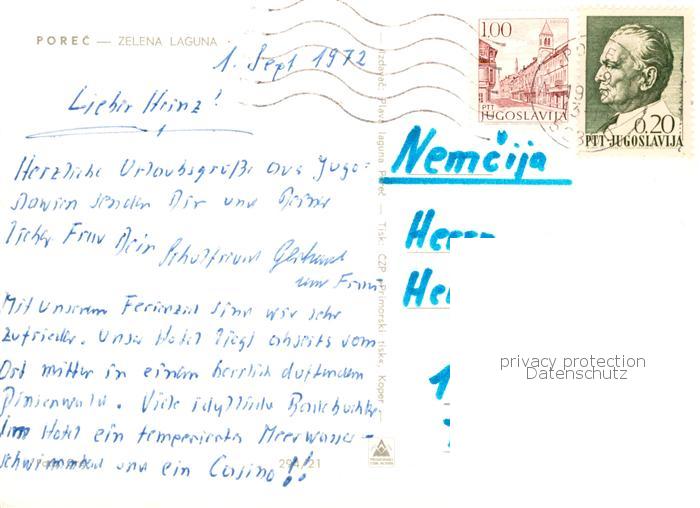 POREČ — ZELENA LAGUNA
1. Sept 1972
Lieber Heinz!
Herzliche Urlaubsgrüße aus Jugo-
slawien senden Dir und Deiner
lieber Frau Dein Schulfreund
und Frau
Mit unserem Ferienziel sind wir sehr
zufrieden. Unser Hotel liegt abseits vom
Ort mitten in einem herrlich duftendem
Pinienwald. Viele idyllische Badebuchten
Im Hotel ein temperiertes Meerwasser-
schwimmbad und ein Casino!!
Izdavač: Plava laguna Poreč — Tisk: ČZP »Primorski tisk« Koper
1.00
PTT
JUGOSLAVIJA
0.20
PTT-JUGOSLAVIJA
Nemčija
Herrn
privacy protection
Datenschutz